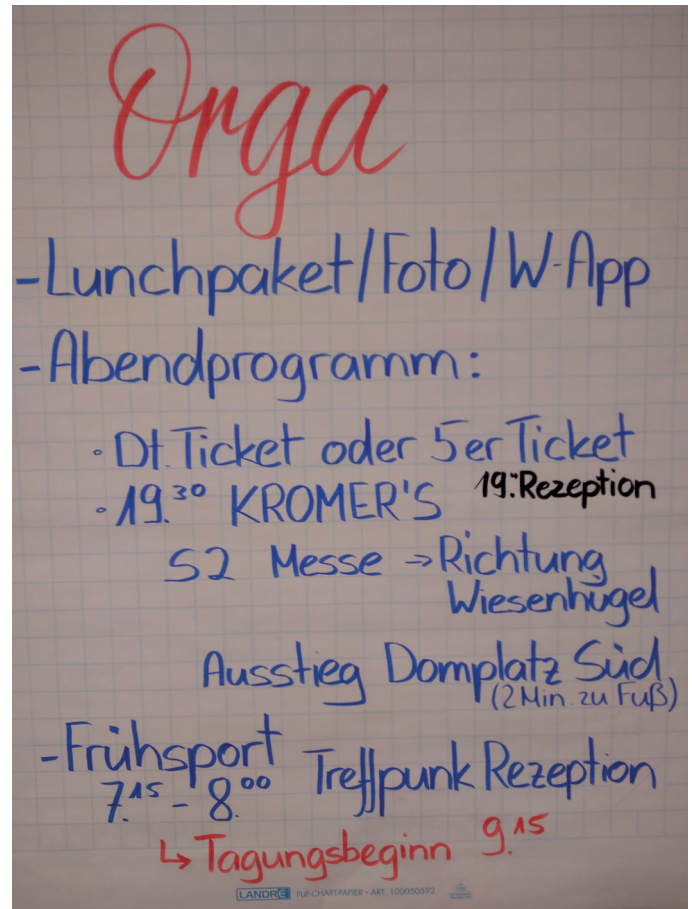 Orga
-Lunchpaket/Foto/W-App
-Abendprogramm:
• Dt. Ticket oder 5er Ticket
• 19.³⁰ KROMER'S 19:⁰⁰ Rezeption
S2 Messe → Richtung
Wiesenhügel
Ausstieg Domplatz Süd
(2 Min. zu Fuß)
-Frühsport Treffpunk Rezeption
7.¹⁵ - 8.⁰⁰
↳ Tagungsbeginn 9.¹⁵
LANDRE FLIP-CHART-PAPIER • ART. 100050592